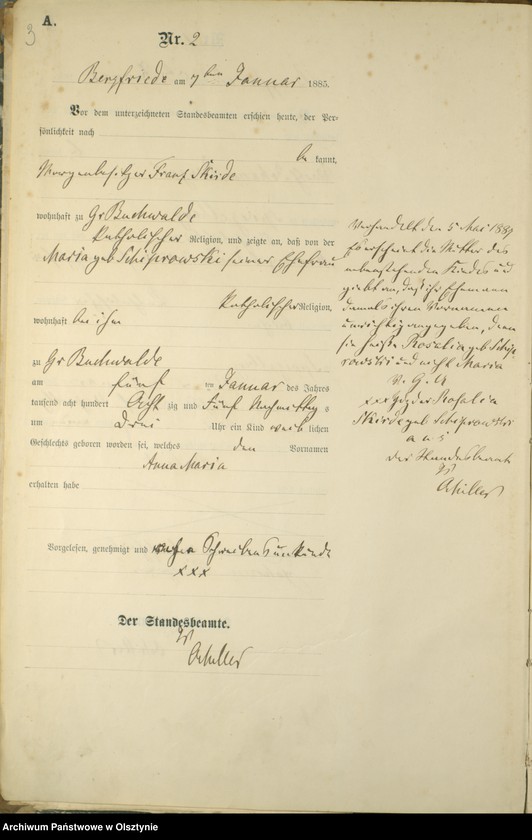 3
A.
Nr. 2
Bergfriede am 7ten Januar 1885.
Vor dem unterzeichneten Standesbeamten erschien heute, der Per-
sönlichkeit nach
be kannt,
Franz Skirde
wohnhaft zu Gr Buchwalde
katholischer Religion, und zeigte an, daß von der
Maria geb Schiprowski seiner Ehefrau
katholischer Religion,
wohnhaft bei ihm
zu Gr Buchwalde
am fünf ten Januar des Jahres
tausend acht hundert Acht zig und Fünf Nachmittag s
um Drei Uhr ein Kind weib lichen
Geschlechts geboren worden sei, welches den Vornamen
Anna Maria
erhalten habe
Vorgelesen, genehmigt und wegen Schreibensunkunde
xxx
Der Standesbeamte.
AMüller
Verhandelt den 5 Mai 1889
Es erscheint die Mutter des
nebenstehenden Kindes und
giebt an, daß ihr Ehemann
damals ihren Vornamen
unrichtig angegeben, denn
sie heiße Rosalia geb Schip
rowski und nicht Maria
V. G. U
xxx der Rosalia
Skirde geb Schiprowski
a u s
Der Standesbeamte
AMüller
Archiwum Państwowe w Olsztynie